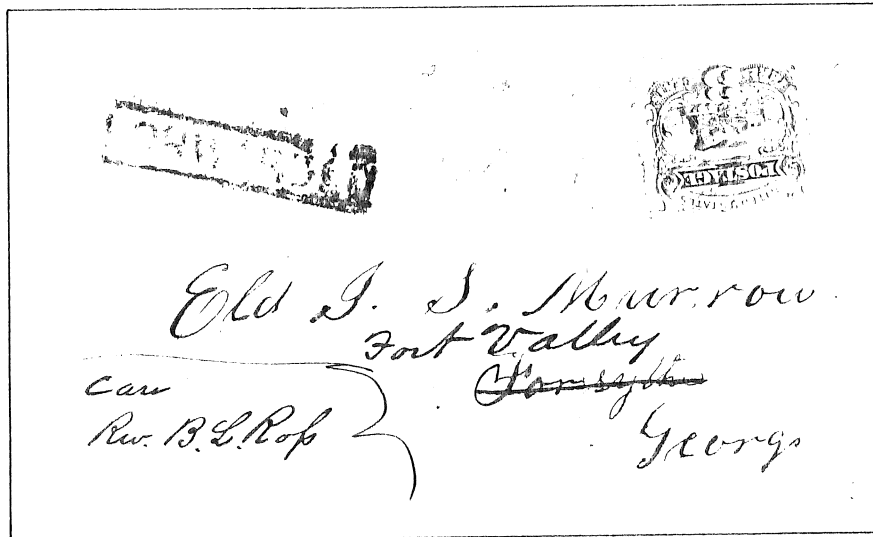 Eld J. S. Murrow
Fort Valley
Forsyth
Georga
care
Rev. B. L. Roſs
POSTAGE